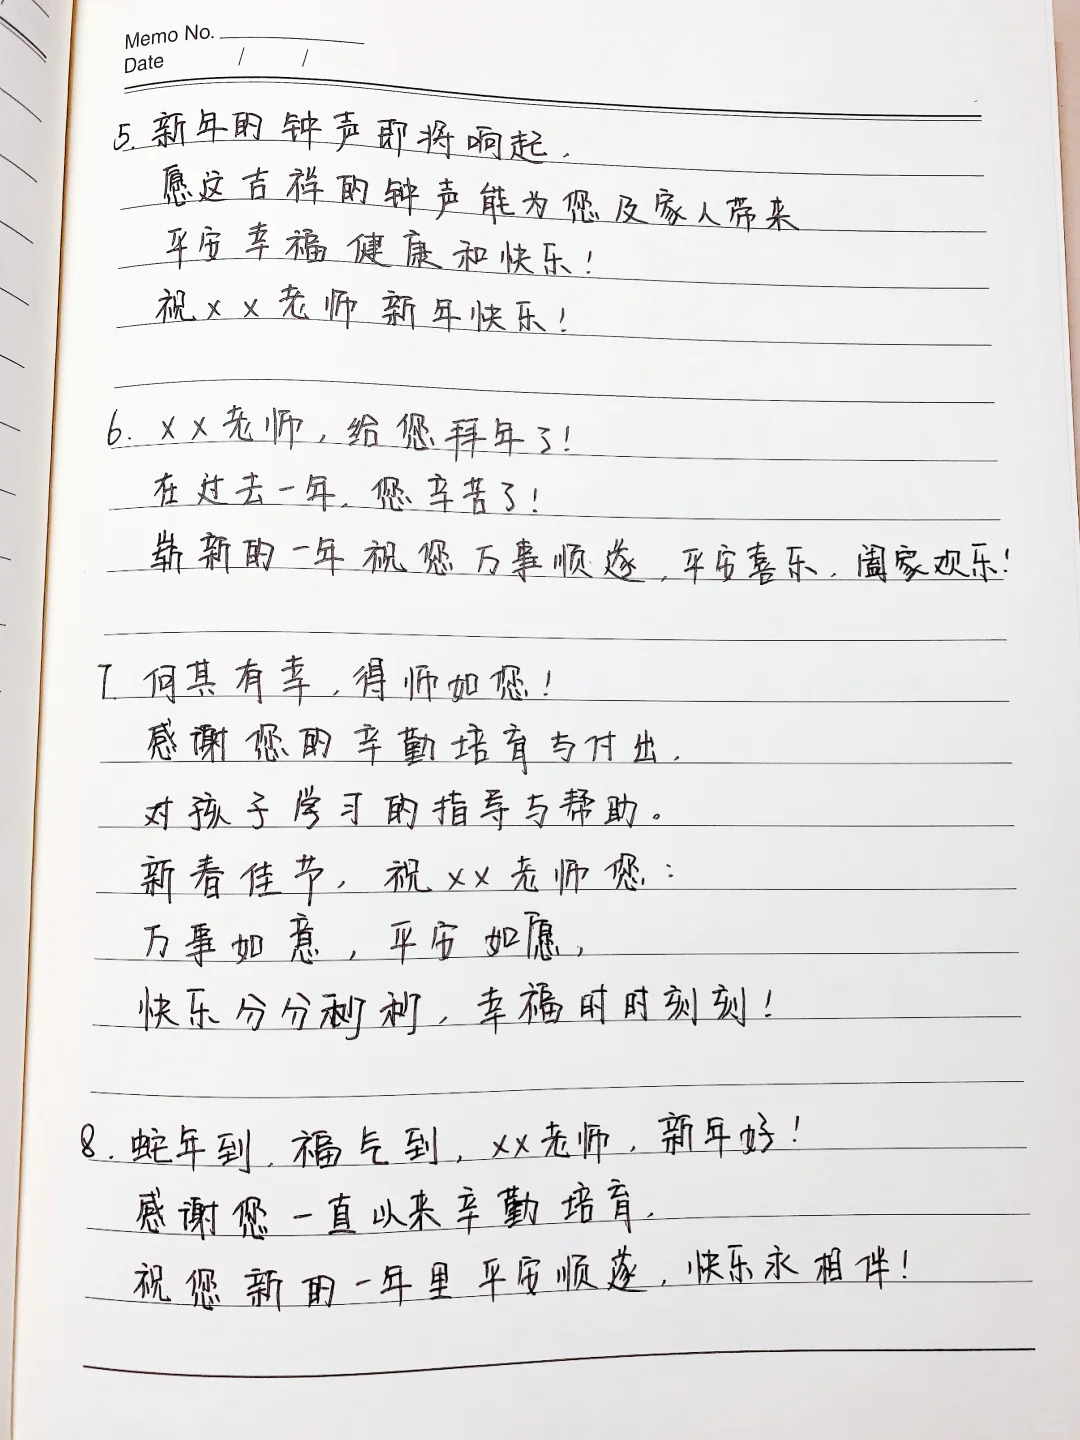 Memo No.
Date / /
5. 新年的钟声即将响起,
愿这吉祥的钟声能为您及家人带来
平安幸福健康和快乐!
祝xx老师新年快乐!
6. xx老师,给您拜年了!
在过去一年,您辛苦了!
崭新的一年祝您万事顺遂,平安喜乐,阖家欢乐!
7. 何其有幸,得师如您!
感谢您的辛勤培育与付出,
对孩子学习的指导与帮助。
新春佳节,祝xx老师您:
万事如意,平安如愿,
快乐分分秒秒,幸福时时刻刻!
8. 蛇年到,福气到,xx老师,新年好!
感谢您一直以来辛勤培育,
祝您新的一年里平安顺遂,快乐永相伴!